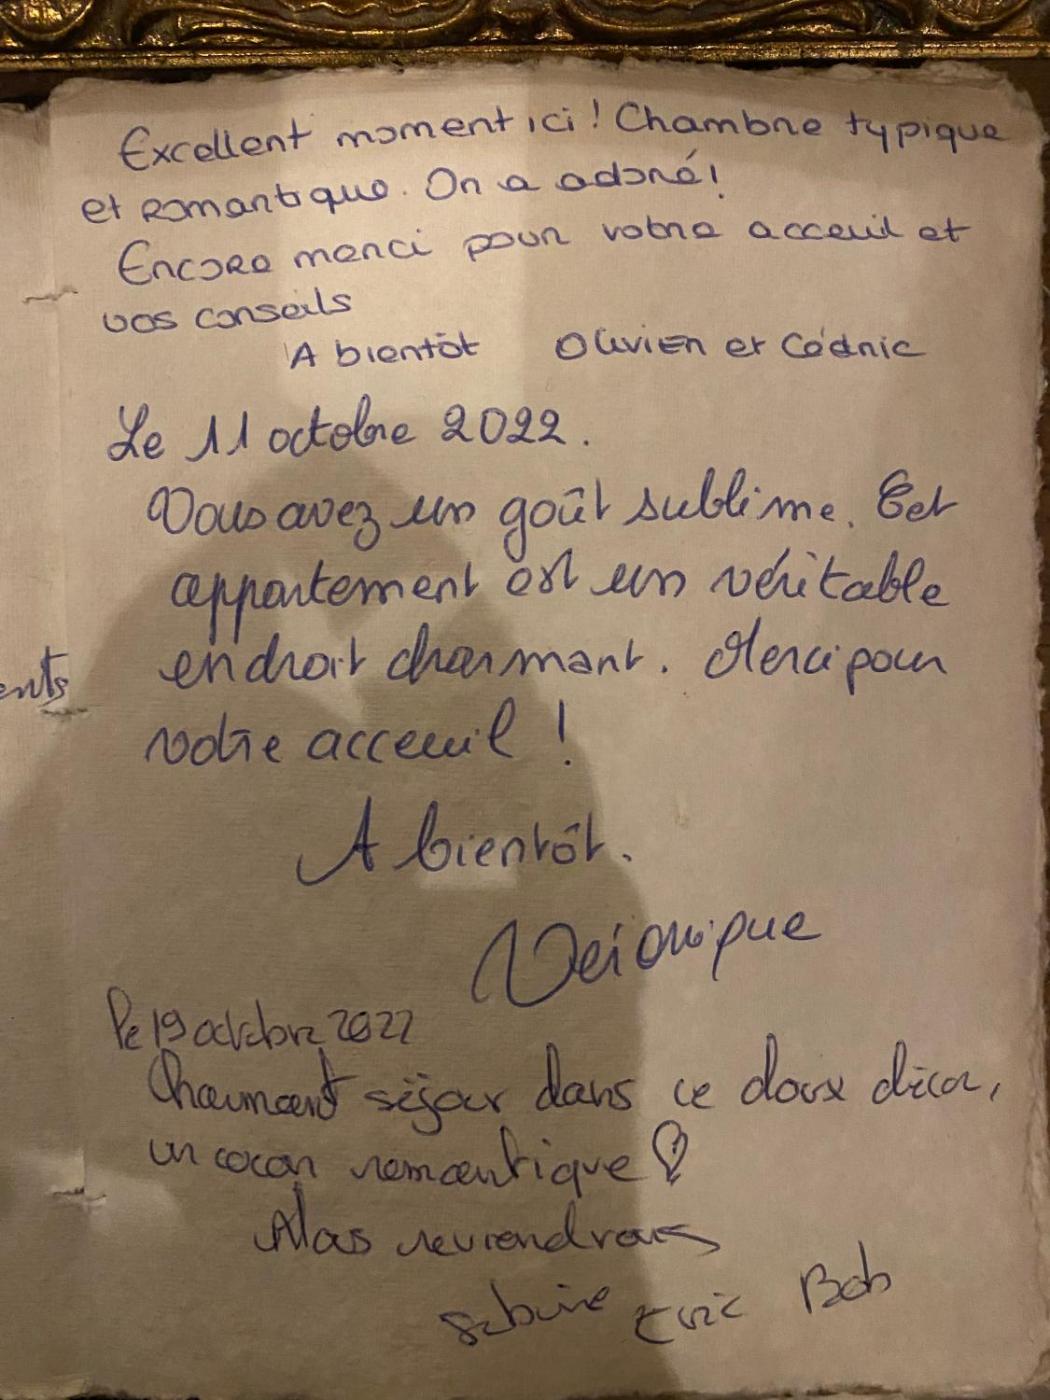 Excellent moment ici ! Chambre typique
et romantique. On a adoré !
Encore merci pour votre acceuil et
vos conseils
A bientôt Olivier et Cédric
Le 11 octobre 2022.
Vous avez un goût sublime. Cet
appartement est un véritable
endroit charmant. Merci pour
ents
votre acceuil !
A bientôt.
Véronique
le 19 octobre 2022
Charmant séjour dans ce doux décor,
un cocon romantique
Nous reviendrons
Sabine Eric Bob